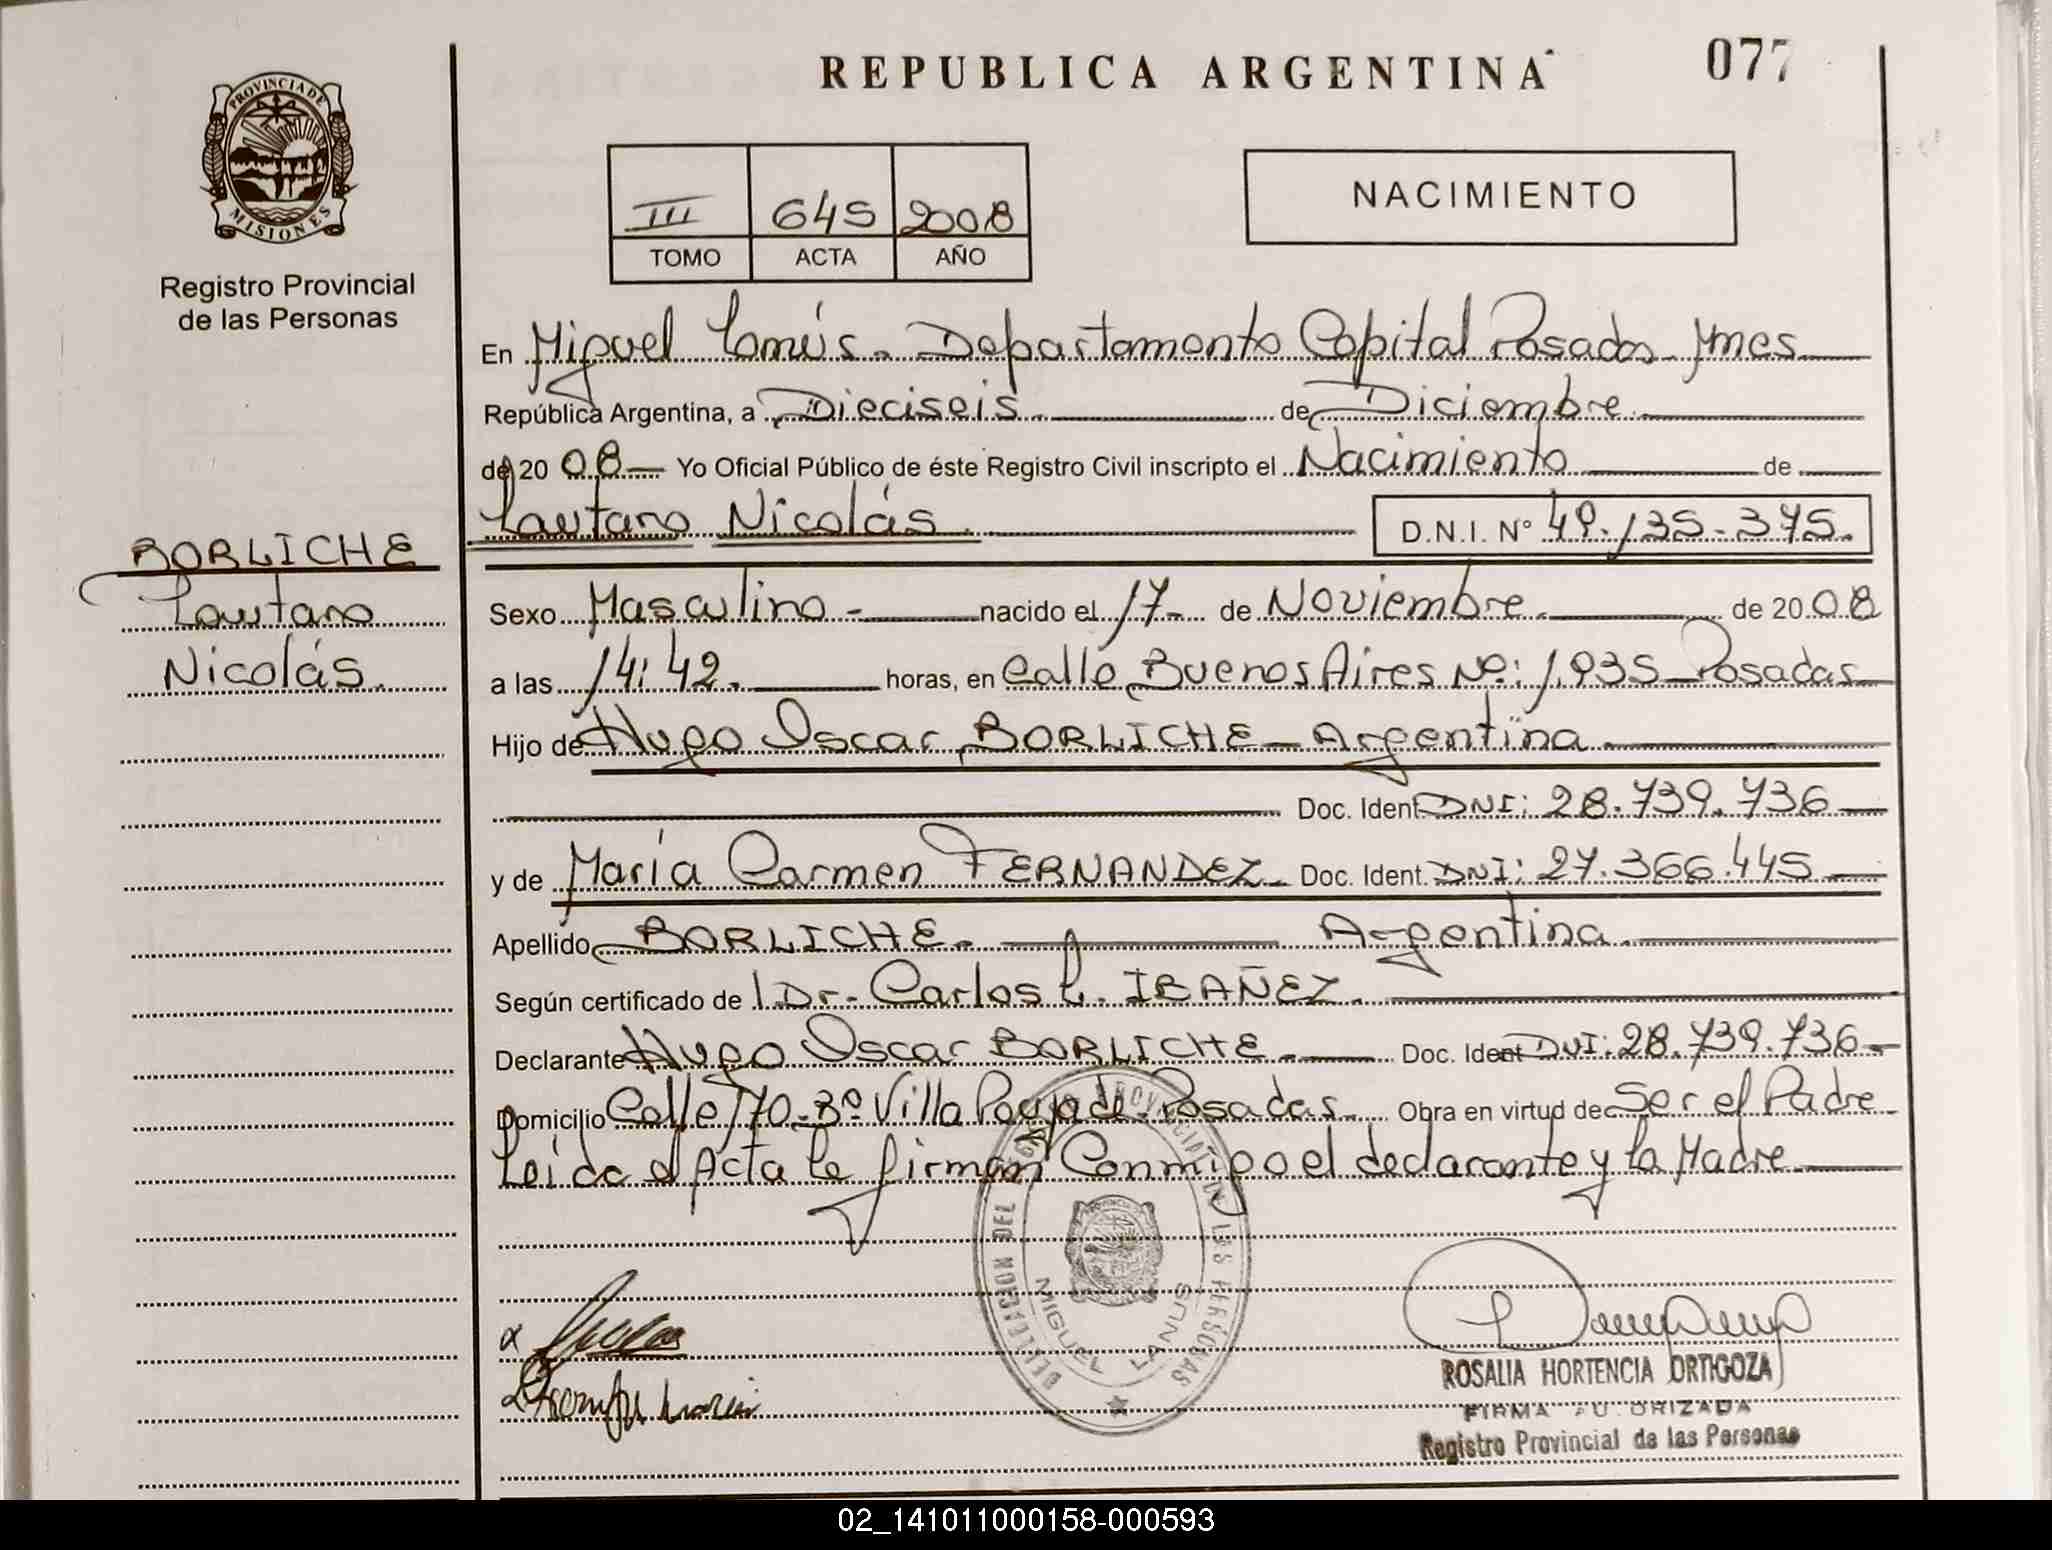 REPUBLICA ARGENTINA
077
PROVINCIA DE
MISIONES
Registro Provincial
de las Personas
III 645 2008
TOMO ACTA AÑO
NACIMIENTO
En Miguel Lanús. Departamento Capital Posadas Mnes
República Argentina, a Dieciseis de Diciembre
de 20 08 Yo Oficial Público de éste Registro Civil inscripto el Nacimiento de
Lautaro Nicolás. D.N.I. N° 49.135.375.
BORLICHE
Lautaro
Nicolás.
Sexo Masculino - nacido el 17 - de Noviembre. de 20 08
a las 14:42. horas, en Calle Buenos Aires Nº: 1.935 Posadas
Hijo de Hugo Oscar BORLICHE - Argentina
Doc. Ident DNI: 28.739.736
y de María Carmen FERNANDEZ - Doc. Ident. DNI: 27.366.445
Apellido BORLICHE. Argentina.
Según certificado de Dr. Carlos L. IBAÑEZ.
Declarante Hugo Oscar BORLICHE. Doc. Ident DNI: 28.739.736
Domicilio Calle 170 - Bº Villa Posadas. Obra en virtud de Ser el Padre
Leida el Acta la firman Conmigo el declarante y la Madre
DELEGACION DEL REGISTRO PROVINCIAL DE LAS PERSONAS
MIGUEL LANUS
ROSALIA HORTENCIA ORTIGOZA
FIRMA AUTORIZADA
Registro Provincial de las Personas
02_141011000158-000593